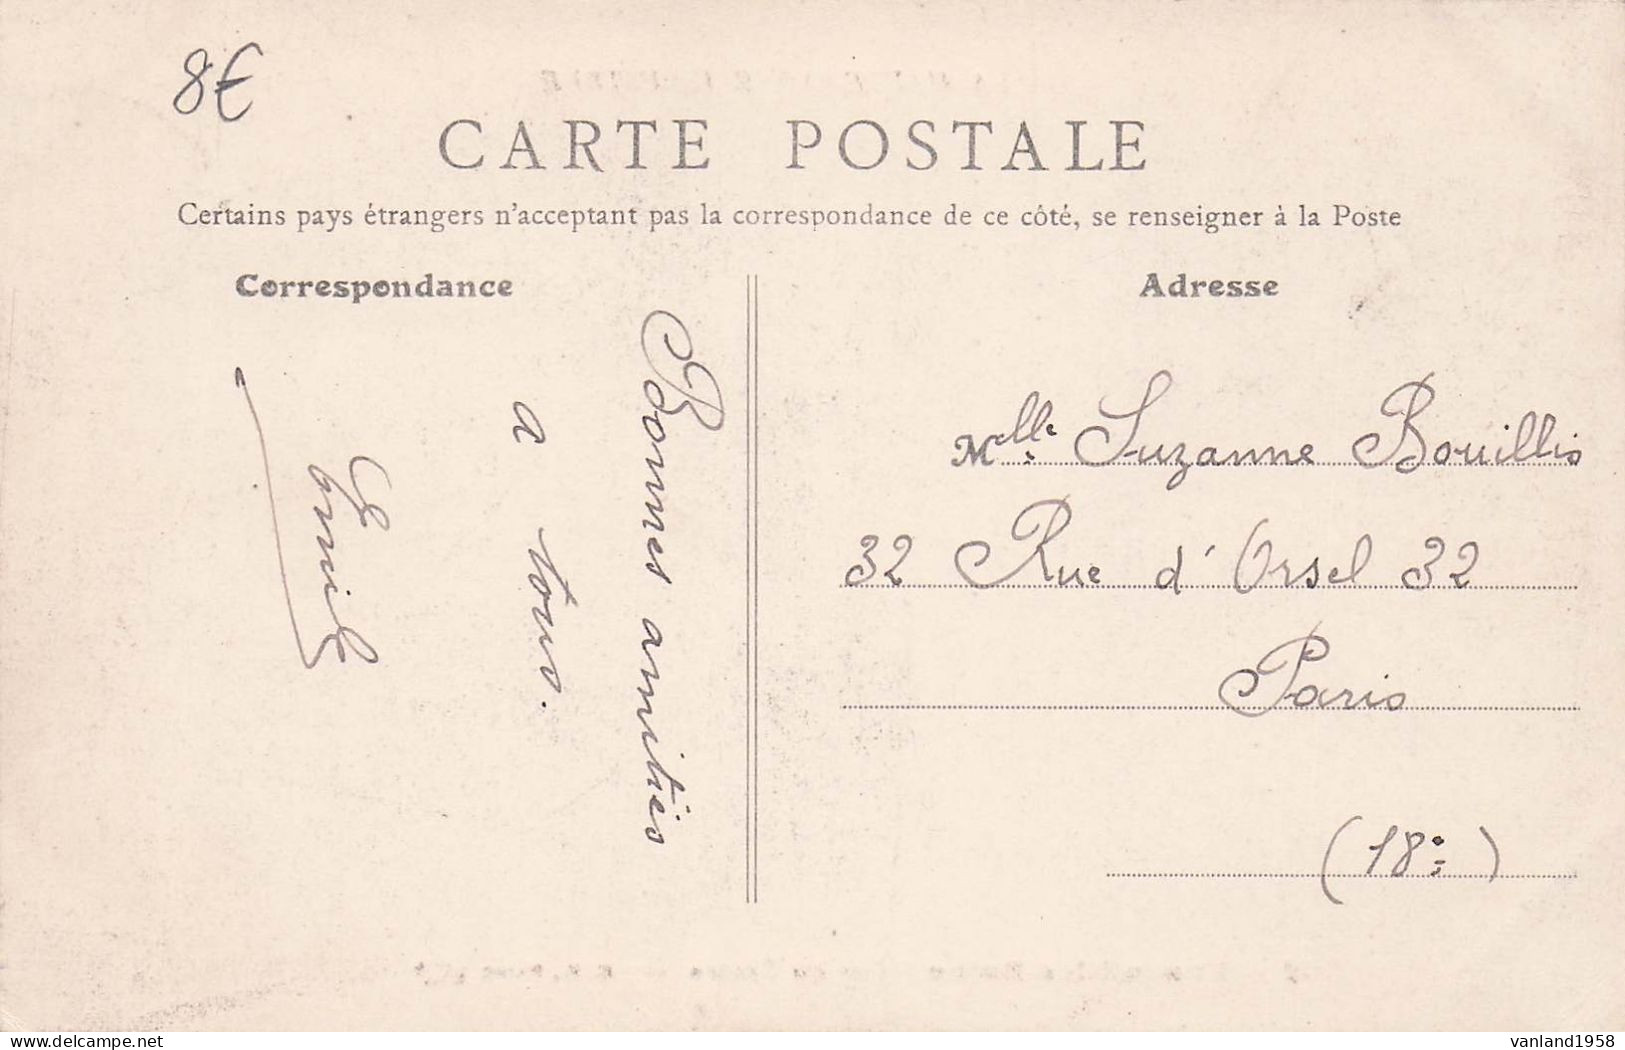 8€
CARTE POSTALE
Certains pays étrangers n'acceptant pas la correspondance de ce côté, se renseigner à la Poste
Correspondance
Bonnes amitiés
a tous.
Emile
Adresse
Melle Suzanne Bouillis
32 Rue d'Orsel 32
Paris
(18e)
delcampe.net
vanland1958